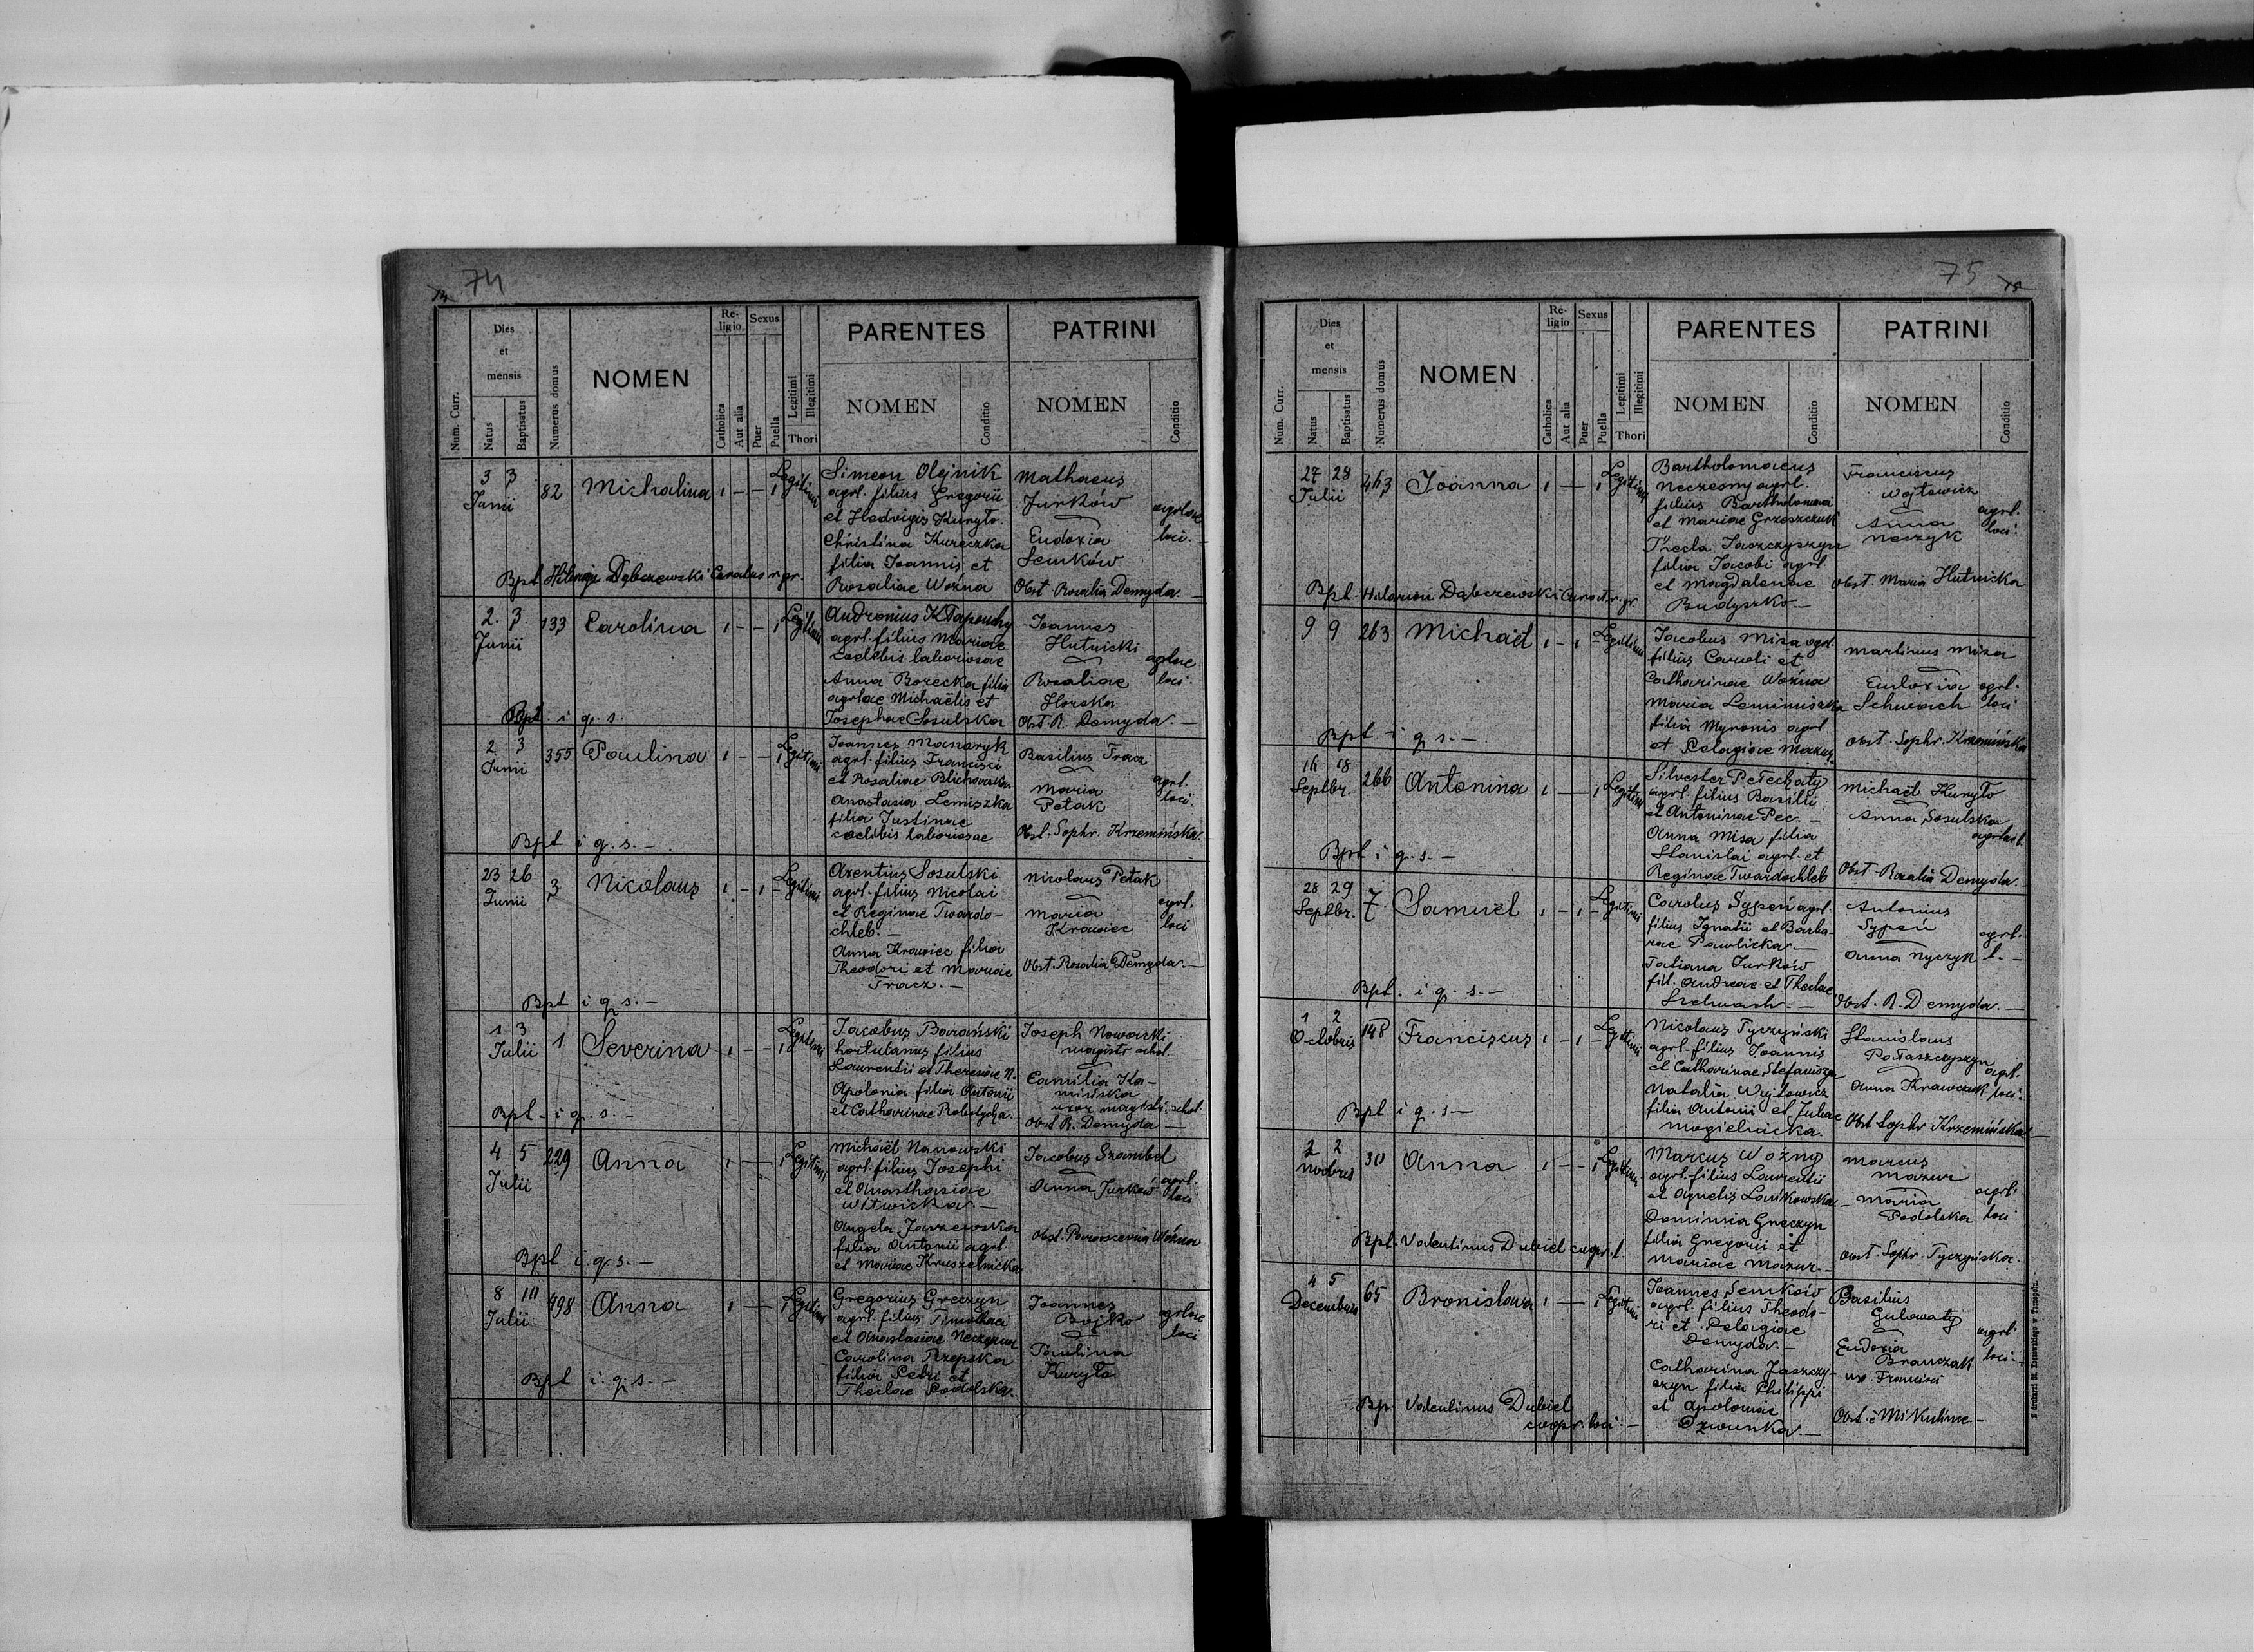 74
Num. Curr.
Dies
et
mensis
Natus
Baptisatus
Numerus domus
NOMEN
Re-
ligio
Catholica
Aut alia
Sexus
Puer
Puella
Legitimi
Illegitimi
Thori
PARENTES
NOMEN
Conditio
PATRINI
NOMEN
Conditio
3 3
Junii
82
Michalina
1 — — 1
Legitimi
Simeon Olejnik
agrl. filius Gregorii
et Hedvigis Kuryło.
Christina Kureczka
filia Joannis et
Rosaliae Woźna
Mathaeus
Jurków
Eudoxia
Semków
agrlae
loci.
Obst. Rosalia Demyda. —
Bpt. Hilarius Dąbczewski Curatus r. gr.
2. 3.
Junii
133
Carolina
1 — — 1
Legitimi
Andronius Kłapouchy
agrl. filius Mariae
Caelibis laboriosae
Anna Borecka filia
agrlae Michaëlis et
Josephae Sosulska
Joannes
Hutnicki
Rosaliae
Horska
agrlae
loci.
Obst. R. Demyda. —
Bpt. i. q. s.
2 3
Junii
355
Paulina
1 — — 1
Legitimi
Joannes Mandryk
agrl. filius Francisci
et Rosaliae Blichowska.
Anastasia Lemiszka
filia Justinae
caelibis laboriosae
Basilius Tracz
Maria
Petak
agrl.
loci.
Obst. Sophr. Krzemińska. —
Bpt i q. s. —
23 26
Junii
3
Nicolaus
1 — 1 —
Legitimi
Arentius Sosulski
agrl. filius Nicolai
et Reginae Twardo-
chleb. —
Anna Krawiec filia
Theodori et Mariae
Tracz. —
Nicolaus Petak
Maria
Krawiec
agrl.
loci
Obst. Rosalia Demyda. —
Bpt i q s. —
1 3
Julii
1
Severina
1 — — 1
Legitimi
Jacobus Barański
hortulanus filius
Laurentii et Theresiae N.
Apolonia filia Antonii
et Catharinae Robotycha.
Joseph Nowarski
magistr. schol.
Camilia Ka-
mińska
uxor magistri schol.
Obst. R. Demyda —
Bpt. i q. s. —
4 5
Julii
229
Anna
1 — — 1
Legitimi
Michaël Nanowski
agrl. filius Josephi
et Anasthasiae
Witwicka. —
Angela Jarzewska
filia Antonii agrl.
et Mariae Kruszelnicka
Jacobus Szambel
Anna Jurków
agrl.
loci
Obst. Woźna
Bpt i. q. s. —
8 10
Julii
498
Anna
1 — — 1
Legitimi
Gregorius Greczyn
agrl. filius Timothaei
et Anastasiae Neczesna
Carolina Rzepska
filia Petri et
Theclae Podolska.
Joannes
Bojko
Paulina
Kuryło
agrlae
loci
Bpt i. q. s. —
75
Num. Curr.
Dies
et
mensis
Natus
Baptisatus
Numerus domus
NOMEN
Re-
ligio
Catholica
Aut alia
Sexus
Puer
Puella
Legitimi
Illegitimi
Thori
PARENTES
NOMEN
Conditio
PATRINI
NOMEN
Conditio
27 28
Julii
463
Joanna
1 — 1
Legitimi
Bartholomaeus
Neczesny agrl.
filius Bartholomaei
et Mariae Grzeszczuk
Thecla Jaszczyszyn
filia Jacobi agrl.
et Magdalenae
Budyszko —
Franciscus
Wojtowicz
Anna
Neszyk
agrl.
loci.
Obst. Maria Hutnicka
Bpt. Hilarius Dąbczewski Curat. r. gr.
9 9
263
Michaël
1 — 1
Legitimi
Jacobus Misa agrl.
filius Caroli et
Catharinae Woźna
Maria Lemiszka
filia Myronis agrl
et Pelagiae Mazur.
Martinus Misa
Eudoxia
Schwach
agrl.
loci
Obst. Sophr. Krzemińska
Bpt. i q s. —
16 18
Septbr.
266
Antonina
1 — 1
Legitimi
Silvester Pełechaty
agrl. filius Basilii
et Antoninae Pec. —
Anna Misa filia
Stanislai agrl. et
Reginae Twardochleb
Michaël Kuryło
Anna Sosulska
agrlae l.
Obst. Rosalia Demyda.
Bpt i q. s. —
28 29
Septbr.
7
Samuel
1 — 1 —
Legitimi
Carolus Sypeń agrl.
filius Ignatii et Barba-
rae Pawlicka —
Tatiana Jurków
fil. Andreae et Theclae
Szelwach. —
Antonius
Sypeń
Anna Nyczyk
agrl.
l. —
Obst. R. Demyda. —
Bpt. i q. s. —
1 2
Octobris
148
Franciscus
1 — 1 —
Legitimi
Nicolaus Tyczyński
agrl. filius Joannis
et Catharinae Stefanisza
Natalia Wojtowicz
filia Antonii et Juliae
Mogielnicka.
Stanislaus
Połaszczyszyn
Anna Krawczuk
agrl.
loci.
Obst. Sophr. Krzemińska —
Bpt i q. s —
2 2
Novbris
30
Anna
1 — — 1
Legitimi
Marcus Woźny
agrl. filius Laurentii
et Agnetis Lasikowska
Dominica Greczyn
filia Gregorii et
Mariae Mazur. —
Marcus
Mazur
Maria
Podolska
agrl.
loci
Obst. Sophr. Tyczyńska.
Bpt. Valentinus Dubiel coopr. l.
4 5
Decembris
65
Bronislawa
1 — 1
Legitimi
Joannes Semków
agrl. filius Theodo-
ri et Pelagiae
Demyda. —
Catharina Jaszczy-
szyn filia Philippi
et Apoloniae
Dzwonka. —
Basilius
Gulowaty
Eudoxia
Branczak
ux. Francisci
agrl.
loci. —
Obst. e Mikulince —
Bp. Valentinus Dubiel
coopr. loci. —